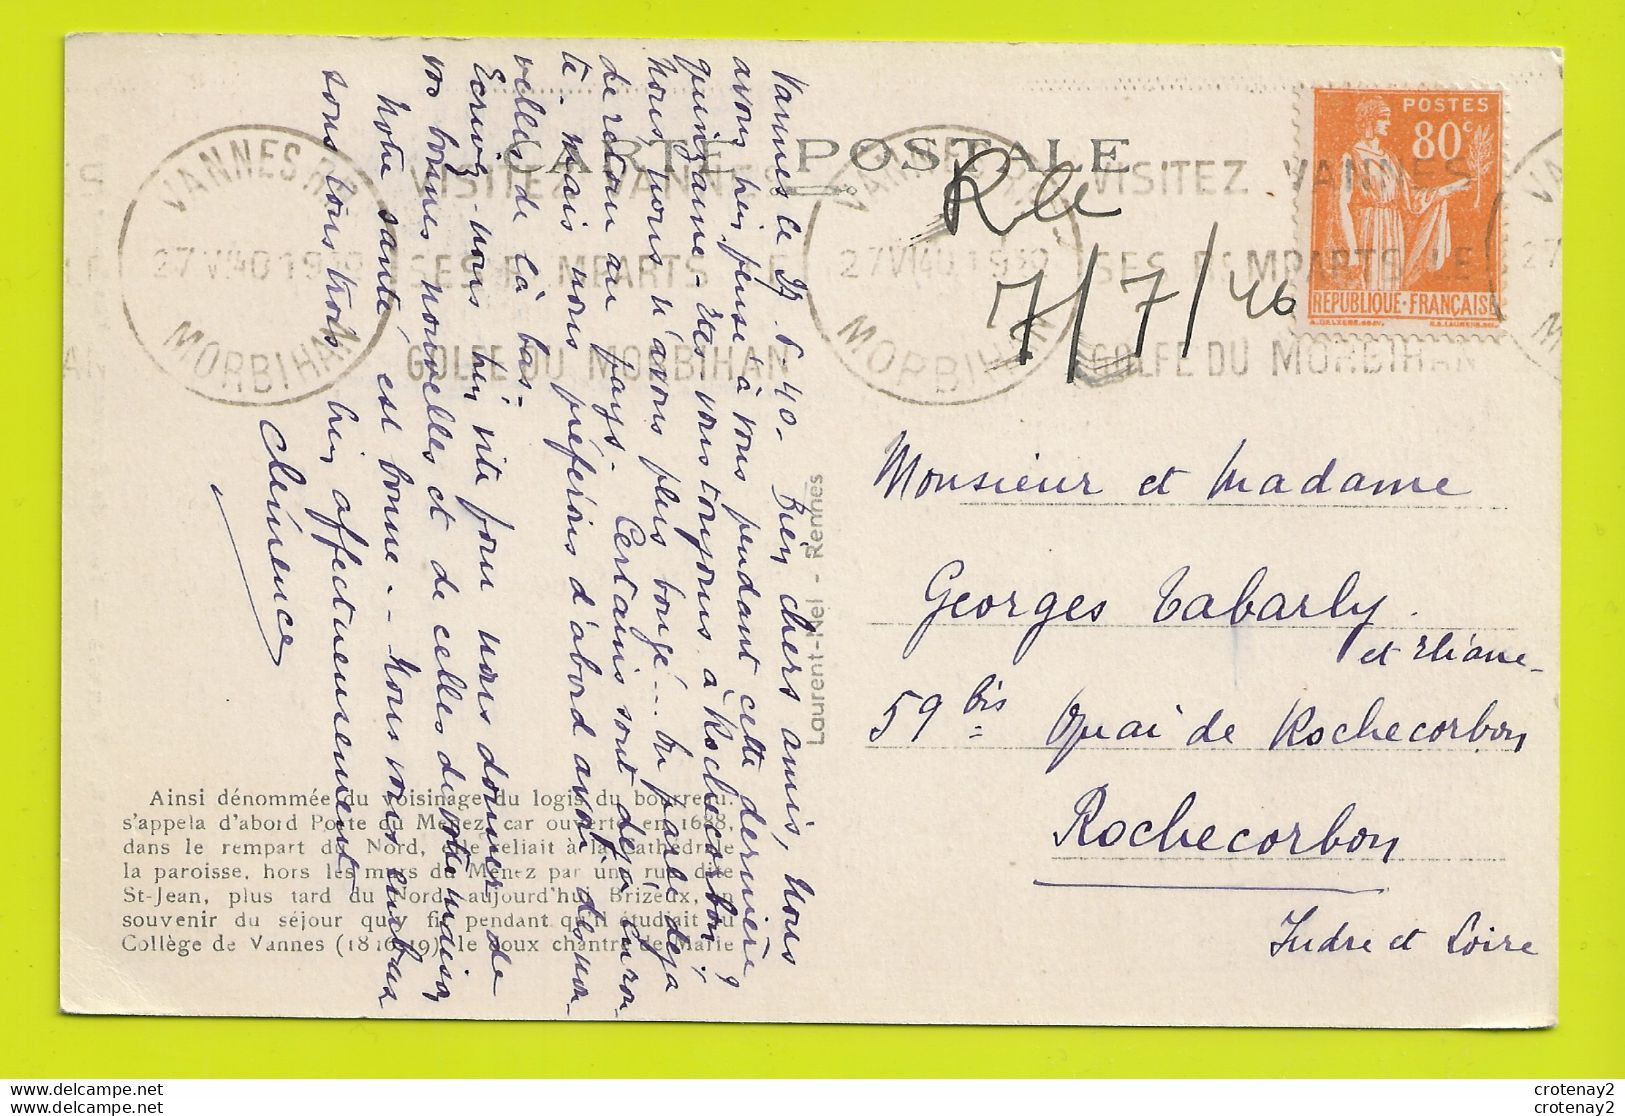 CARTE POSTALE
VANNES R.P.
27 VI 40 19
MORBIHAN
VISITEZ VANNES
SES REMPARTS LE
GOLFE DU MORBIHAN
VANNES
27 VI 40 1930
MORBIHAN
VISITEZ VANNES
SES REMPARTS LE
GOLFE DU MORBIHAN
POSTES
80c
REPUBLIQUE·FRANÇAISE
7/7/40
Vannes le 27.6.40. Bien chers amis, nous
avons bien pensé à vous pendant cette dernière
quinzaine. Etes vous toujours à Rochecorbon ?
nous, nous n'avons plus bougé... On parle déjà
de retour au pays. Certains sont déjà en rou-
te. Mais nous préférons d'abord avoir des nou-
velles de là bas.
Ecrivez-nous bien vite pour nous donner de
vos bonnes nouvelles et de celles de votre maison
notre santé est bonne. - Nous vous embras
sons tous trois bien affectueusement
Clémence
Laurent-Nel - Rennes
Monsieur et Madame
Georges Tabarly.
et Eliane
59 bis Quai de Rochecorbon
Rochecorbon
Indre et Loire
Ainsi dénommée du voisinage du logis du bourreau.
s'appela d'abord Porte du Menez, car ouverte en 1688,
dans le rempart du Nord, elle reliait à la cathédrale
la paroisse, hors les murs du Menez par une rue dite
St-Jean, plus tard du Nord, aujourd'hui Brizeux, en
souvenir du séjour qu'y fit pendant qu'il étudiait au
Collège de Vannes (1816-19), le doux chantre de Marie
www.delcampe.net
www.delcampe.net
crotenay2
crotenay2